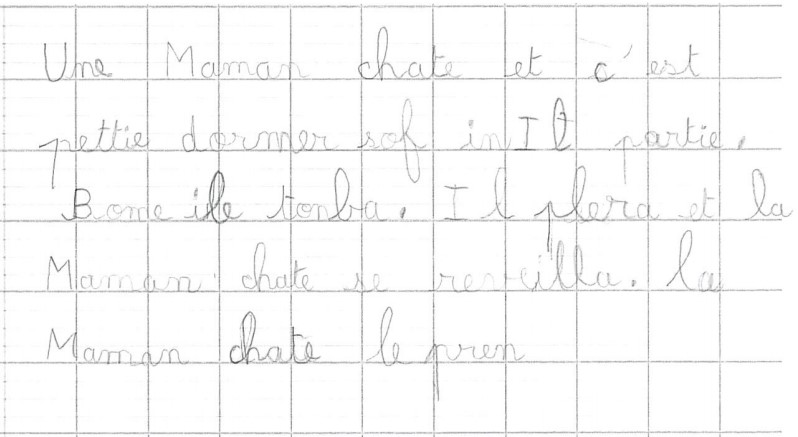 Une Maman chate et c'est
pettie dormer sof in Il partie.
Bome ile tonba. Il plera et la
Maman chate se rerveilla. la
Maman chate le pren